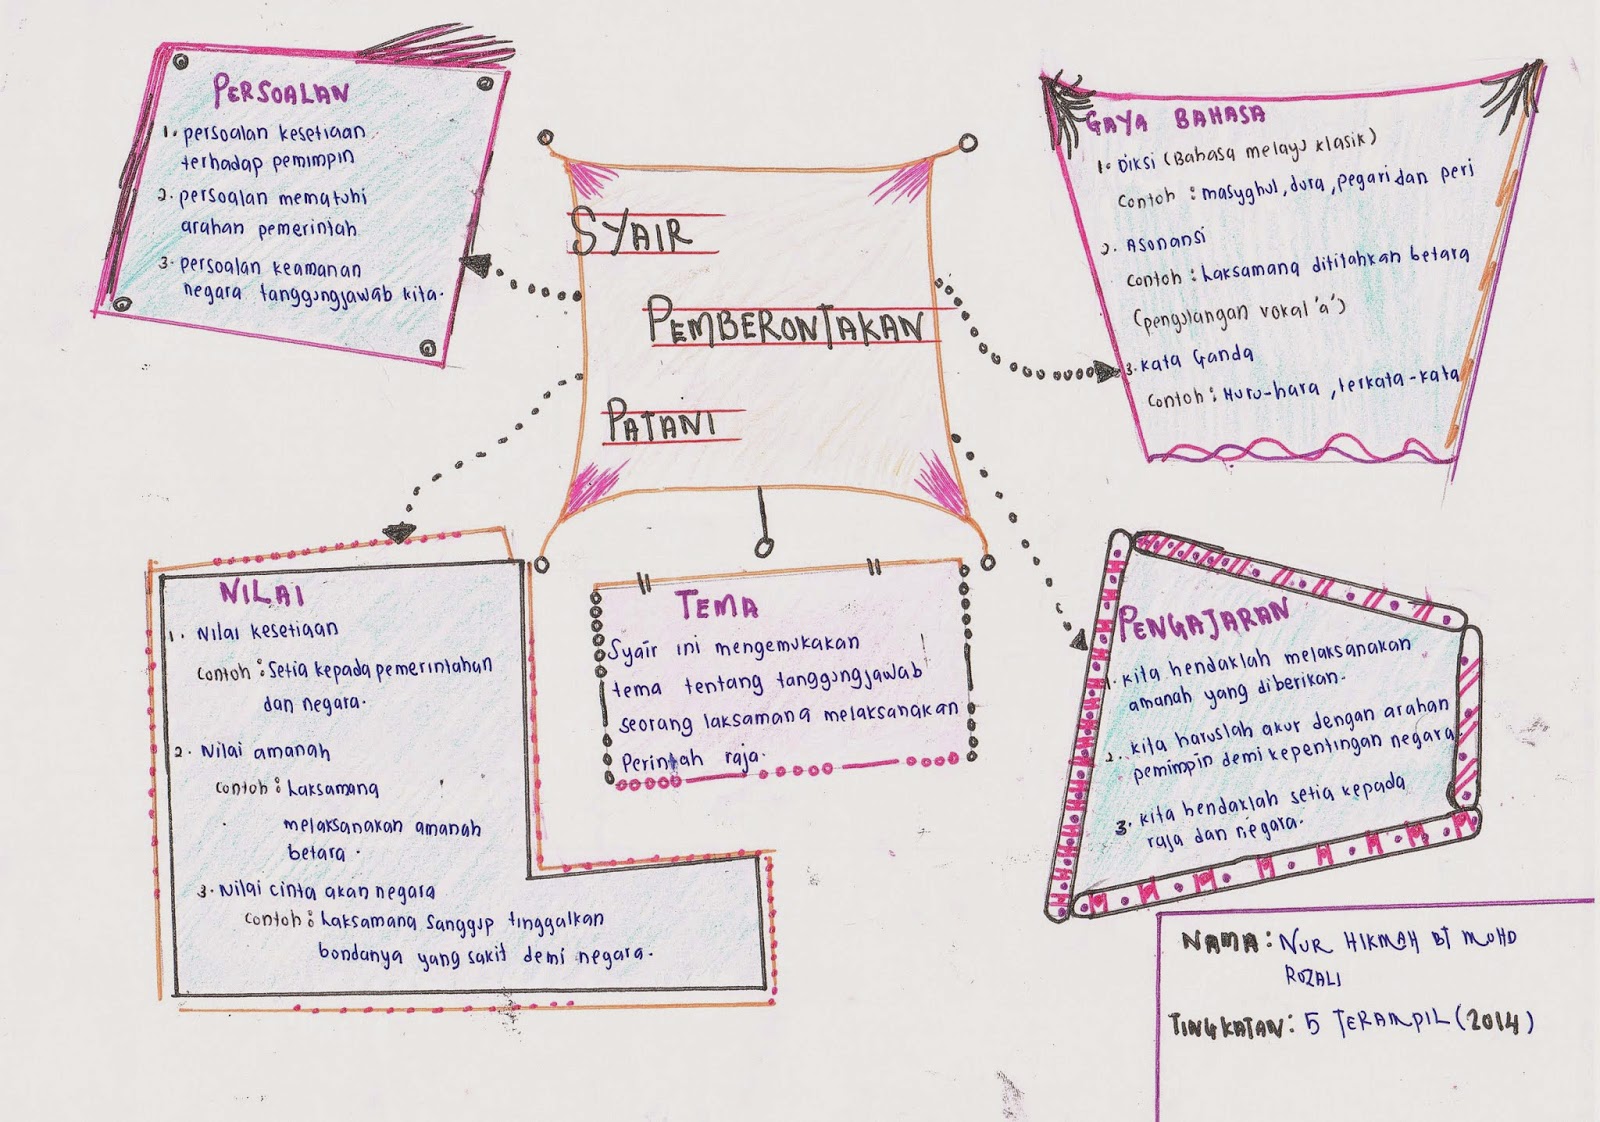 SYAIR
PEMBERONTAKAN
PATANI
PERSOALAN
1. persoalan kesetiaan
terhadap pemimpin
2. persoalan mematuhi
arahan pemerintah
3. persoalan keamanan
negara tanggungjawab kita.
GAYA BAHASA
1. Diksi (Bahasa melayu klasik)
Contoh : masyghul, dura, pegari dan peri
2. Asonansi
Contoh : Laksamana dititahkan betara
(pengulangan vokal 'a')
3. Kata Ganda
Contoh : Huru-hara, terkata-kata
NILAI
1. Nilai kesetiaan
Contoh : Setia kepada pemerintahan
dan negara.
2. Nilai amanah
Contoh : Laksamana
melaksanakan amanah
betara.
3. Nilai cinta akan negara
Contoh : Laksamana sanggup tinggalkan
bondanya yang sakit demi negara.
TEMA
Syair ini mengemukakan
tema tentang tanggungjawab
seorang laksamana melaksanakan
Perintah raja.
PENGAJARAN
1. Kita hendaklah melaksanakan
amanah yang diberikan.
2. Kita haruslah akur dengan arahan
pemimpin demi kepentingan negara
3. Kita hendaklah setia kepada
raja dan negara.
NAMA : NUR HIKMAH BT MOHD
ROZALI
TINGKATAN : 5 TERAMPIL (2014)